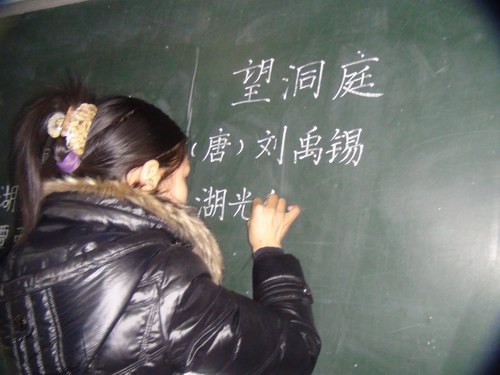 望洞庭
(唐)刘禹锡
湖光
湖